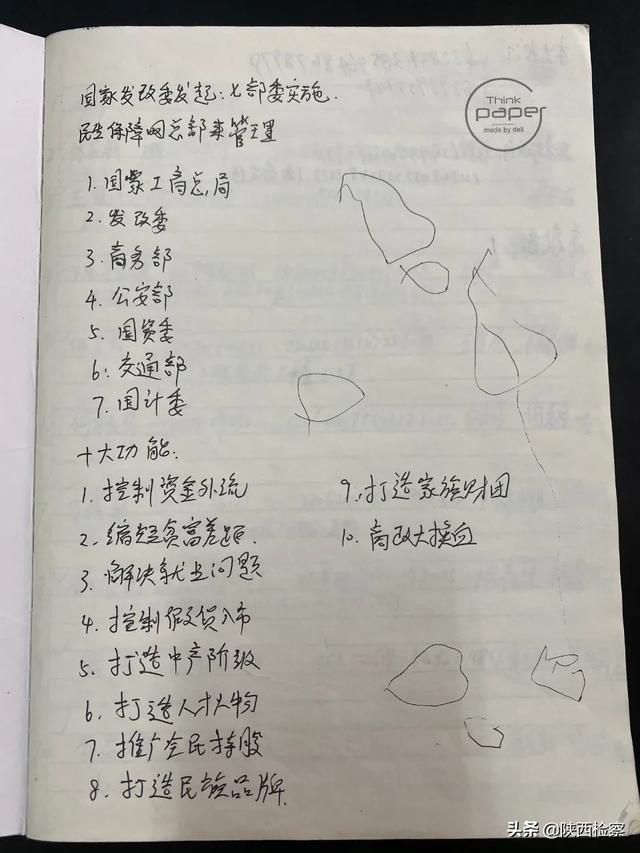 国家发改委发起:七部委实施.
民生保障网总部来管理
Think
paper
made by deli
1. 国家工商总局
2. 发改委
3. 商务部
4. 公安部
5. 国资委
6. 交通部
7. 国计委
十大功能:
1. 控制资金外流
2. 缩短贫富差距.
3. 解决就业问题
4. 控制假货入市
5. 打造中产阶级
6. 打造人才人物
7. 推广全民持股
8. 打造民族品牌.
9. 打造家族财团
10. 商改大换血
头条 @陕西检察